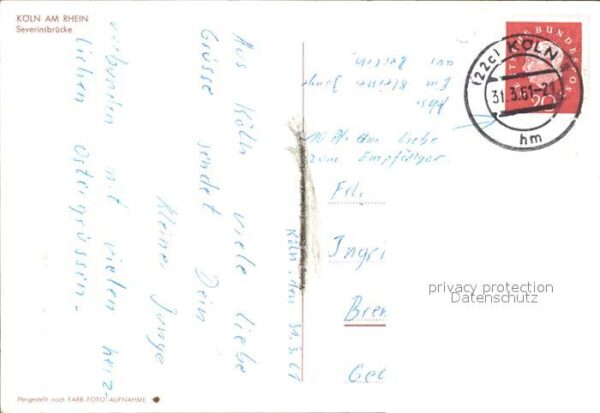 KÖLN AM RHEIN
Severinsbrücke
Köln, den 31.3.61
Aus Köln viele liebe
Grüsse sendet Dein
kleiner Junge
verbunden mit vielen herz-
lichen Ostergrüssen.
Abs:
Ein kleiner Junge
aus Berlin
zum Empfänger
DEUTSCHE BUNDESPOST
20
(22c) KÖLN
31.3.61-21
hm
Frl.
Ingri
Brem
Geo
privacy protection
Datenschutz
Hergestellt nach FARB-FOTO-AUFNAHME